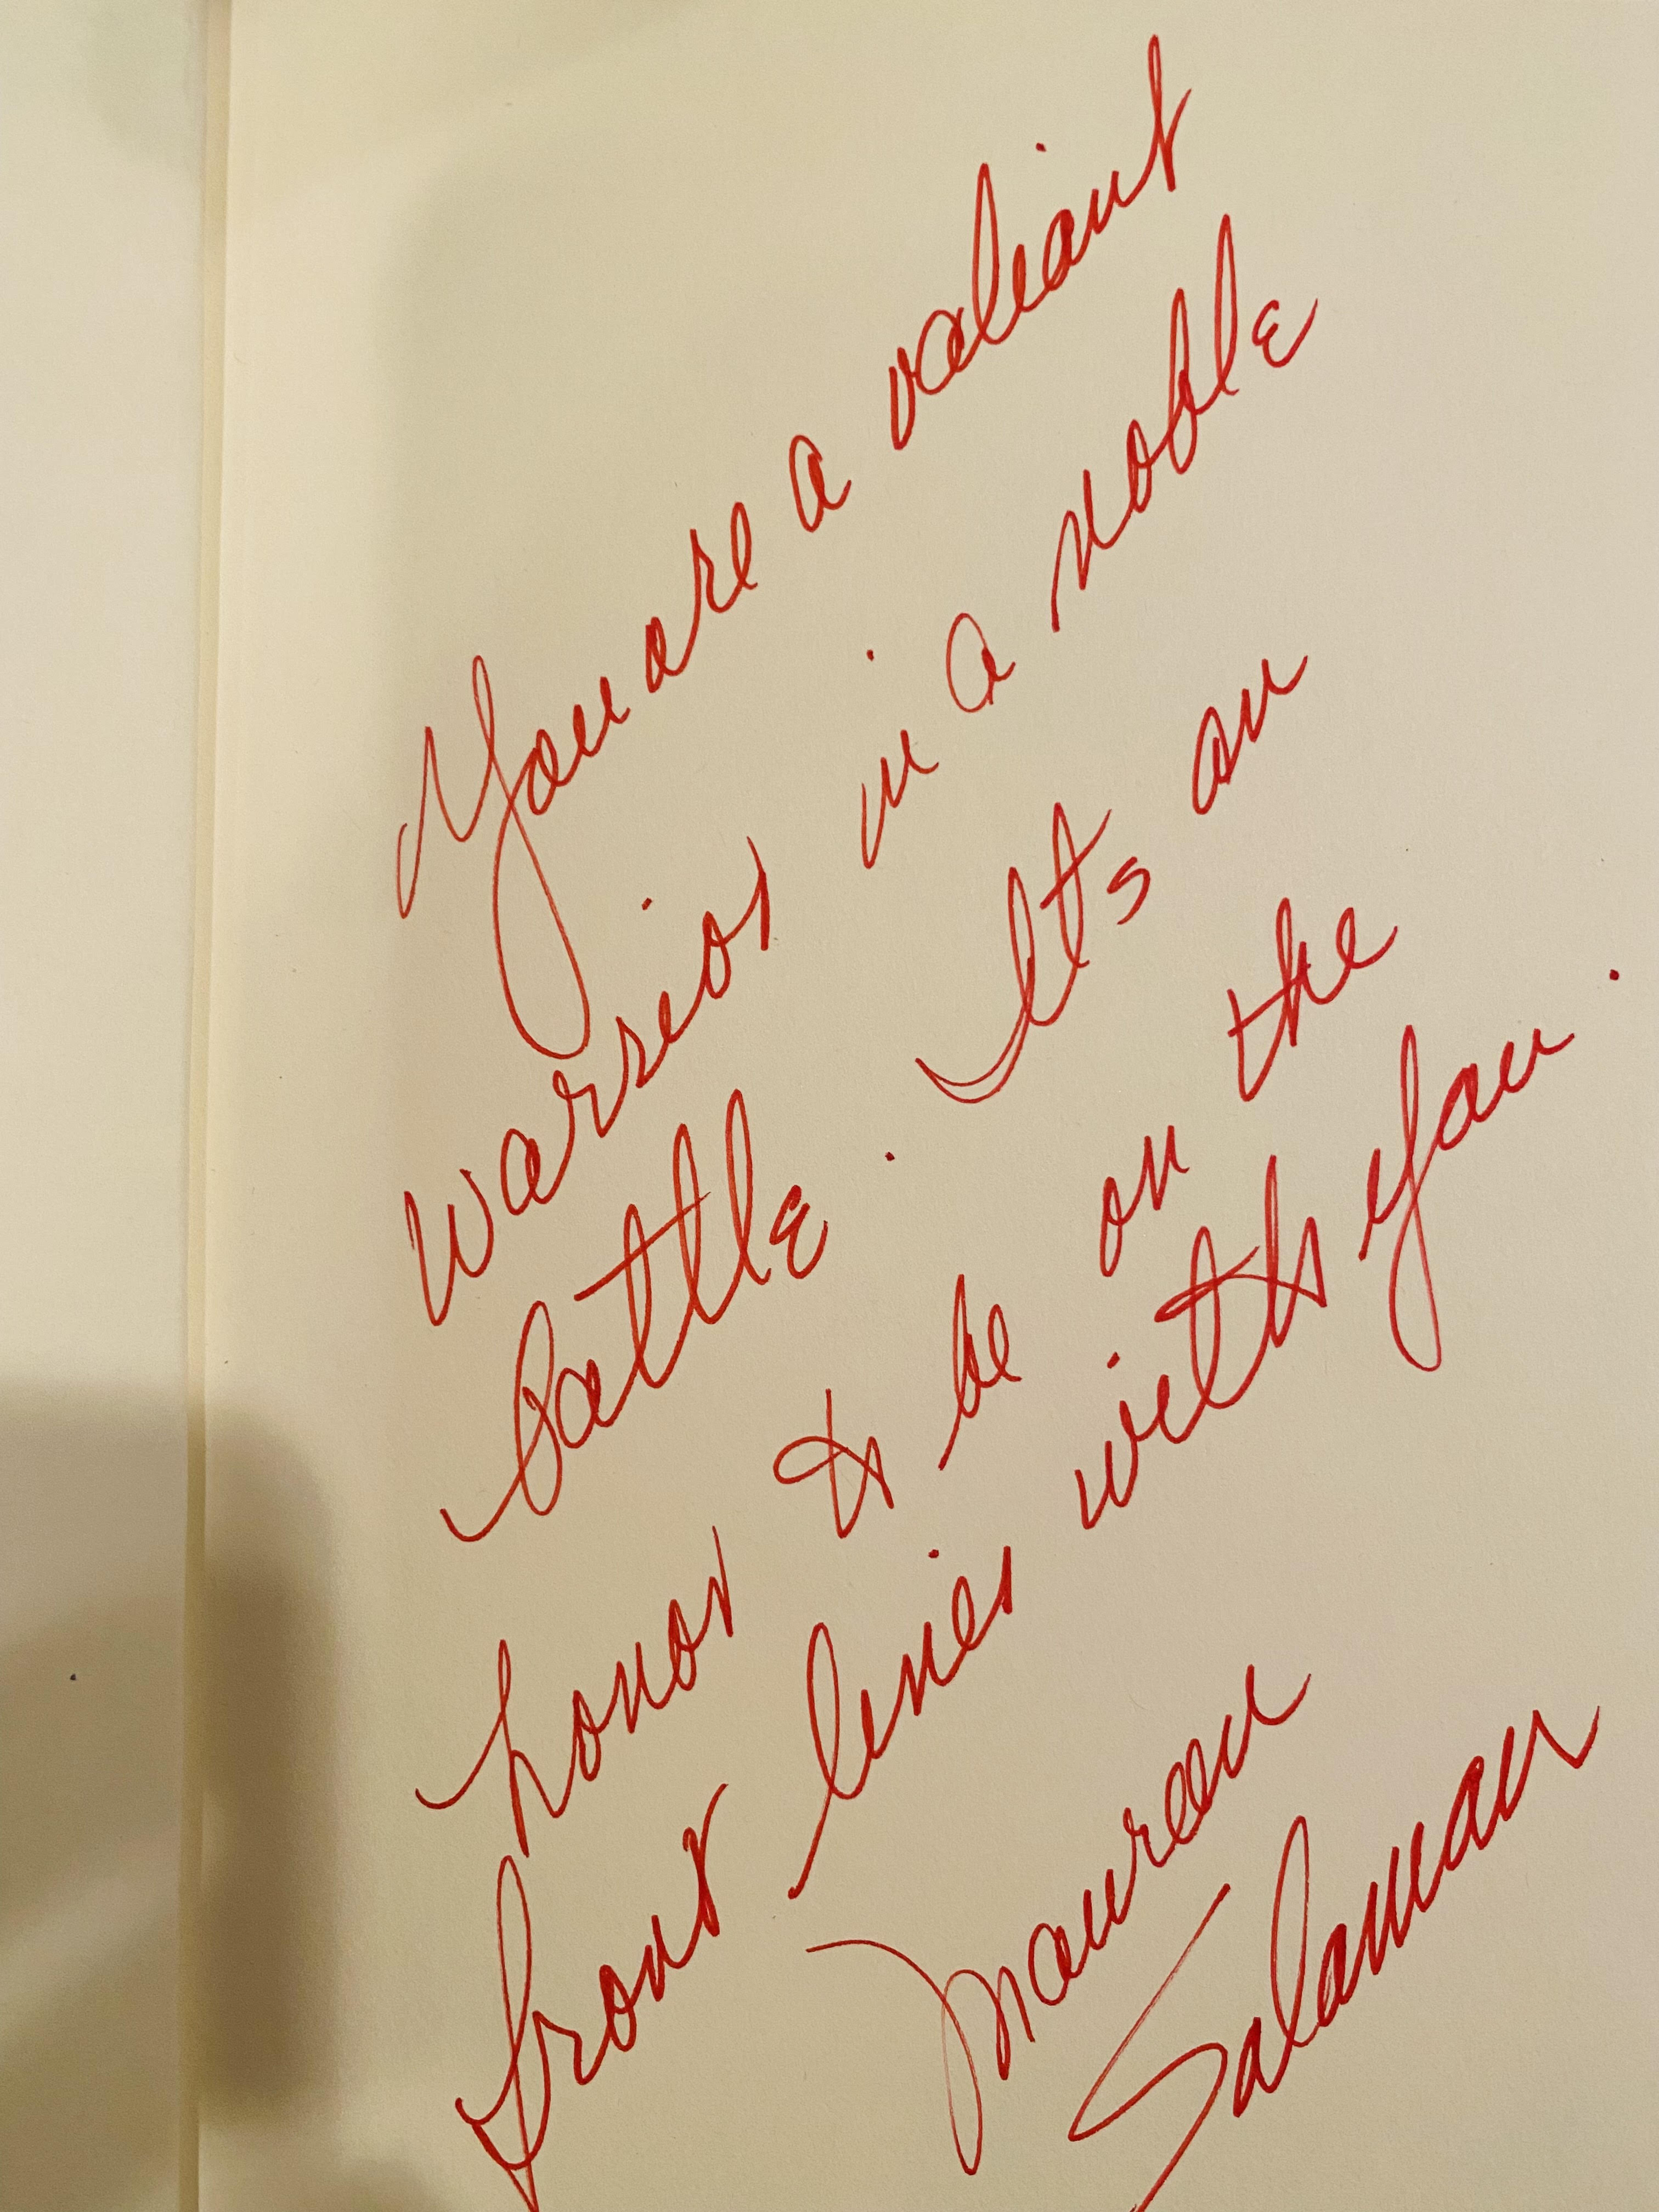 You are a valiant
warrior in a noble
battle. Its an
honor to be on the
front lines with you.
Maureen
Salaman